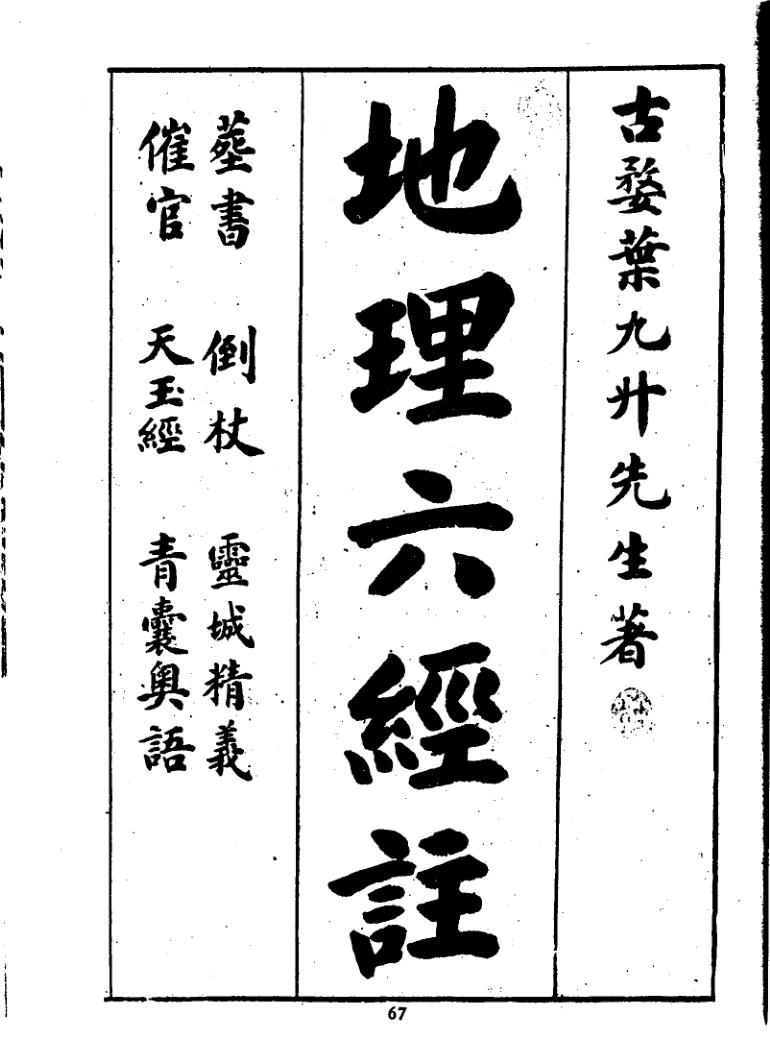 古婺葉九升先生著
地理六經註
葬書 倒杖 靈城精義
催官 天玉經 青囊奧語
67